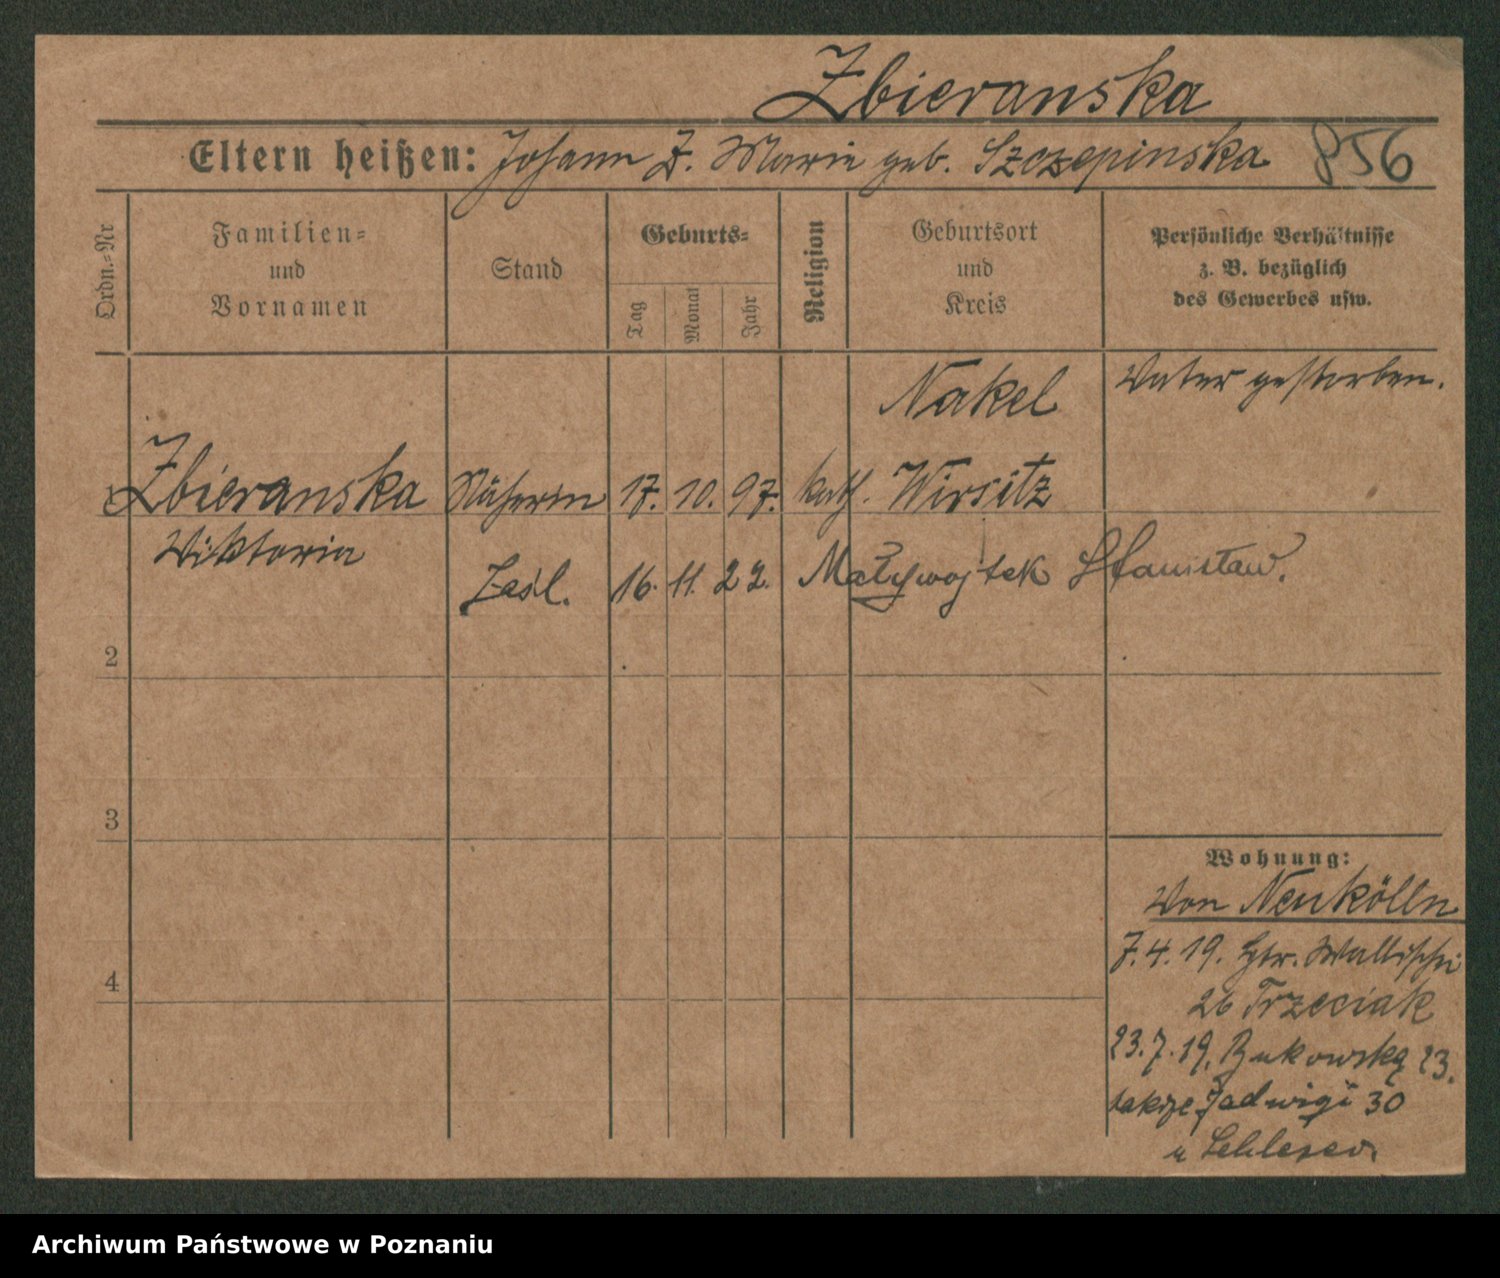 Zbieranska
Eltern heißen: Johann Z. Marie geb. Szczepinska 856
Ordn.-Nr
Familien-
und
Vornamen
Stand
Geburts-
Tag
Monat
Jahr
Religion
Geburtsort
und
Kreis
Persönliche Verhältnisse
z. B. bezüglich
des Gewerbes usw.
Nakel Vater gestorben.
1 Zbieranska Näherin 17. 10. 97. kath. Wirsitz
Viktoria
Zaśl. 16. 11. 22. Maływojtek Stanisław.
2
3
4
Wohnung:
Von Neukölln
7.4.19. Wallischei
26 Trzeciak
23.7.19. Bukowska 23.
takze Jadwigi 30
u
Archiwum Państwowe w Poznaniu